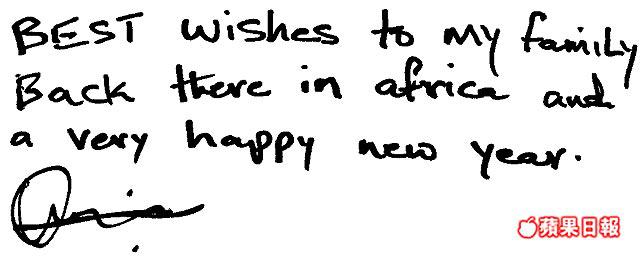 BEST wishes to my family
Back there in africa and
a very happy new year.
蘋果日報